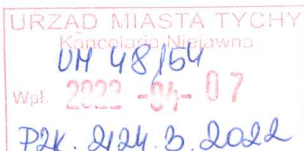 URZĄD MIASTA TYCHY
Kancelaria Niejawna
UM 48/64
Wpł. 2022 -04- 07
PZK.2124.3.2022